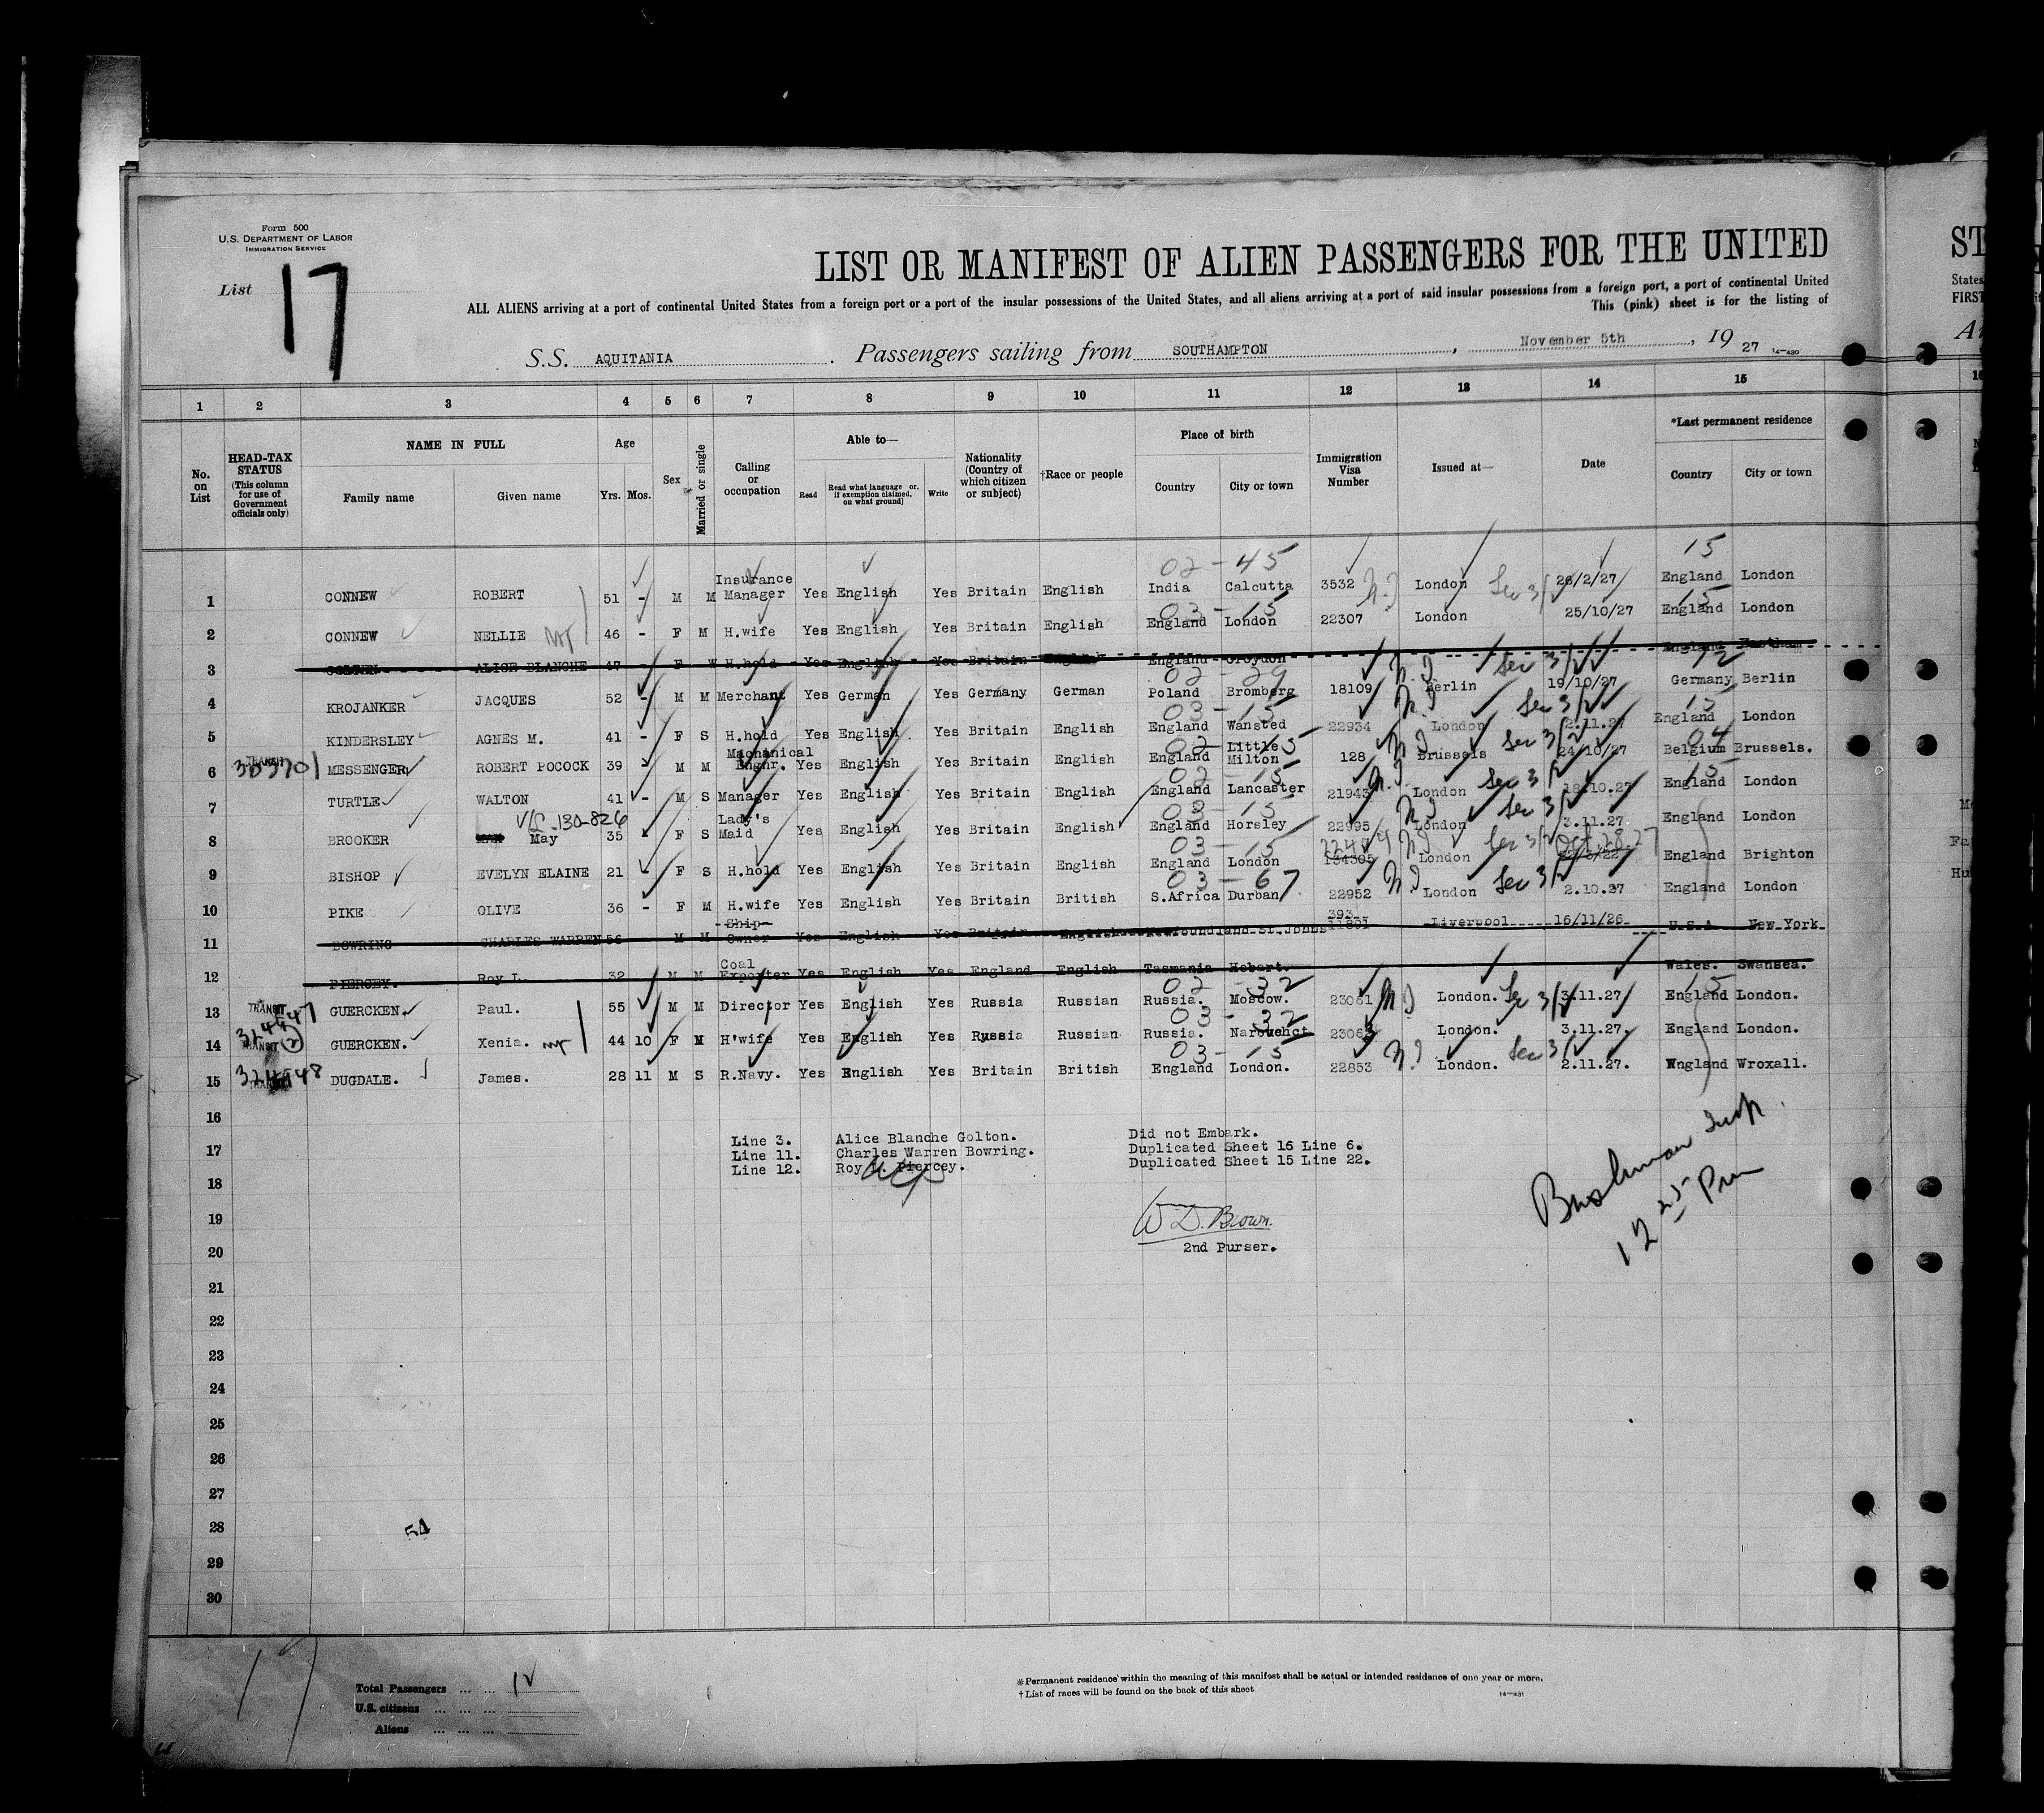 Form 500
U.S. DEPARTMENT OF LABOR
IMMIGRATION SERVICE
List 17
LIST OR MANIFEST OF ALIEN PASSENGERS FOR THE UNITED
ST
ALL ALIENS arriving at a port of continental United States from a foreign port or a port of the insular possessions of the United States, and all aliens arriving at a port of said insular possessions from a foreign port, a port of continental United
States
This (pink) sheet is for the listing of
FIRST
S.S. AQUITANIA. Passengers sailing from SOUTHAMPTON, November 5th, 19 27
1 2 3 4 5 6 7 8 9 10 11 12 13 14 15
No. on List
HEAD-TAX STATUS (This column for use of Government officials only)
NAME IN FULL Family name Given name
Age Yrs. Mos.
Sex
Married or single
Calling or occupation
Able to— Read Read what language or, if exemption claimed, on what ground) Write
Nationality (Country of which citizen or subject)
†Race or people
Place of birth Country City or town
Immigration Visa Number
Issued at—
Date
*Last permanent residence Country City or town
02-45 15
1 CONNEW ROBERT 51 - M M Insurance Manager Yes English Yes Britain English India Calcutta 3532 London 26/2/27 England London
03-15 15
2 CONNEW NELLIE 46 - F M H.wife Yes English Yes Britain English England London 22307 London 25/10/27 England London
3 ALICE BLANCHE 47 - F W H.hold Yes English Yes Britain English England Croydon England
02-29 12
4 KROJANKER JACQUES 52 - M M Merchant Yes German Yes Germany German Poland Bromberg 18109 Berlin 19/10/27 Germany Berlin
03-15 15
5 KINDERSLEY AGNES M. 41 - F S H.hold Yes English Yes Britain English England Wansted 22934 London 2.11.27 England London
02-15 04
6 TRANSIT MESSENGER ROBERT POCOCK 39 - M M Mechinical Enghr. Yes English Yes Britain English England Little Milton 128 Brussels 24/10/27 Belgium Brussels.
02-15 15
7 TURTLE WALTON 41 - M S Manager Yes English Yes Britain English England Lancaster 21943 London England London
03-15
8 BROOKER May 35 F S Lady's Maid Yes English Yes Britain English England Horsley 22995 London 3.11.27 England London
03-15
9 BISHOP EVELYN ELAINE 21 - F S H.hold Yes English Yes Britain English England London 134305 London Oct. 28.27 England Brighton
03-67
10 PIKE OLIVE 36 - F M H.wife Yes English Yes Britain British S.Africa Durban 22952 London 2.10.27 England London
11 BOWRING CHARLES WARREN 56 M M Ship Owner Yes English Yes Britain English Newfoundland St.Johns 393 Liverpool 16/11/26 U.S.A New York
12 PIERCEY. Roy L. 32 M M Coal Exporter Yes English Yes England English Tasmania Hobart. Wales. Swansea.
02-32 15
13 TRANSIT GUERCKEN. Paul. 55 M M Director Yes English Yes Russia Russian Russia. Moscow. 23061 London. 3.11.27 England London.
03-32
14 TRANSIT GUERCKEN. Xenia. 44 10 F M H'wife Yes English Yes Russia Russian Russia. London. 3.11.27. England London.
03-15
15 DUGDALE. James. 28 11 M S R.Navy. Yes English Yes Britain British England London. 22853 London. 2.11.27. England Wroxall.
16
17
18
19
20
21
22
23
24
25
26
27
28
29
30
Line 3. Alice Blanche Golton. Did not Embark.
Line 11. Charles Warren Bowring. Duplicated Sheet 16 Line 6.
Line 12. Roy Piercey. Duplicated Sheet 15 Line 22.
W D. Brown.
2nd Purser.
Bushman Insp.
12 25 Pm
17
Total Passengers ... ... 12
U.S. citizens ... ... ...
Aliens ... ... ...
*Permanent residence within the meaning of this manifest shall be actual or intended residence of one year or more.
†List of races will be found on the back of this sheet
14—431